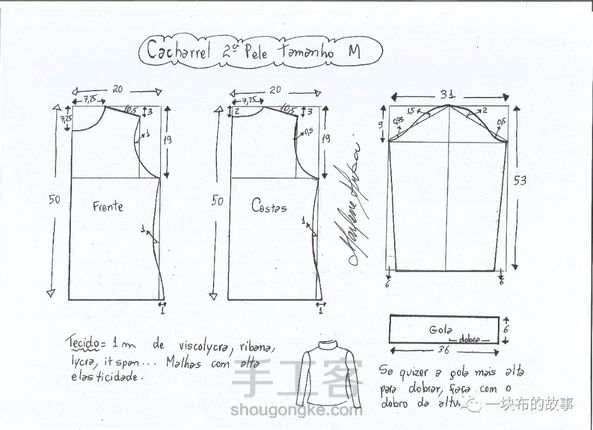 Cacharrel 2ª Pele tamanho M
20
7,25
10,5
3
7,25
1
19
50
Frente
3
1
20
7,25
10,5
3
2
0,5
19
50
Costas
1
1
31
1,5
2
0,75
0,5
9
53
6
6
Gola
dobra
6
36
Tecido = 1 m de viscolycra, ribana,
lycra, it span... Malhas com alta
elasticidade.
Se quizer a gola mais alta
para dobrar, faça com o
dobro da altu
手工客
shougongke.com
一块布的故事